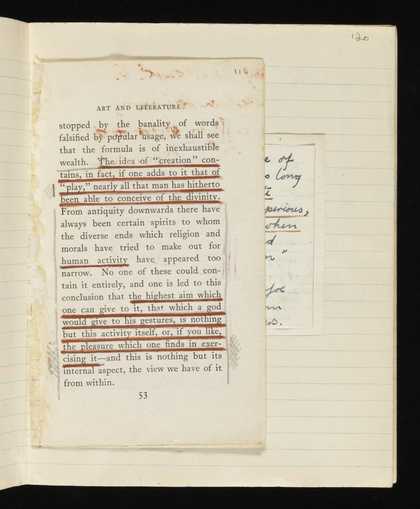 120
116
ART AND LITERATURE
stopped by the banality of words
falsified by popular usage, we shall see
that the formula is of inexhaustible
wealth. The idea of "creation" con-
tains, in fact, if one adds to it that of
"play," nearly all that man has hitherto
been able to conceive of the divinity.
From antiquity downwards there have
always been certain spirits to whom
the diverse ends which religion and
morals have tried to make out for
human activity have appeared too
narrow. No one of these could con-
tain it entirely, and one is led to this
conclusion that the highest aim which
one can give to it, that which a god
would give to his gestures, is nothing
but this activity itself, or, if you like,
the pleasure which one finds in exer-
cising it—and this is nothing but its
internal aspect, the view we have of it
from within.
53
of
long